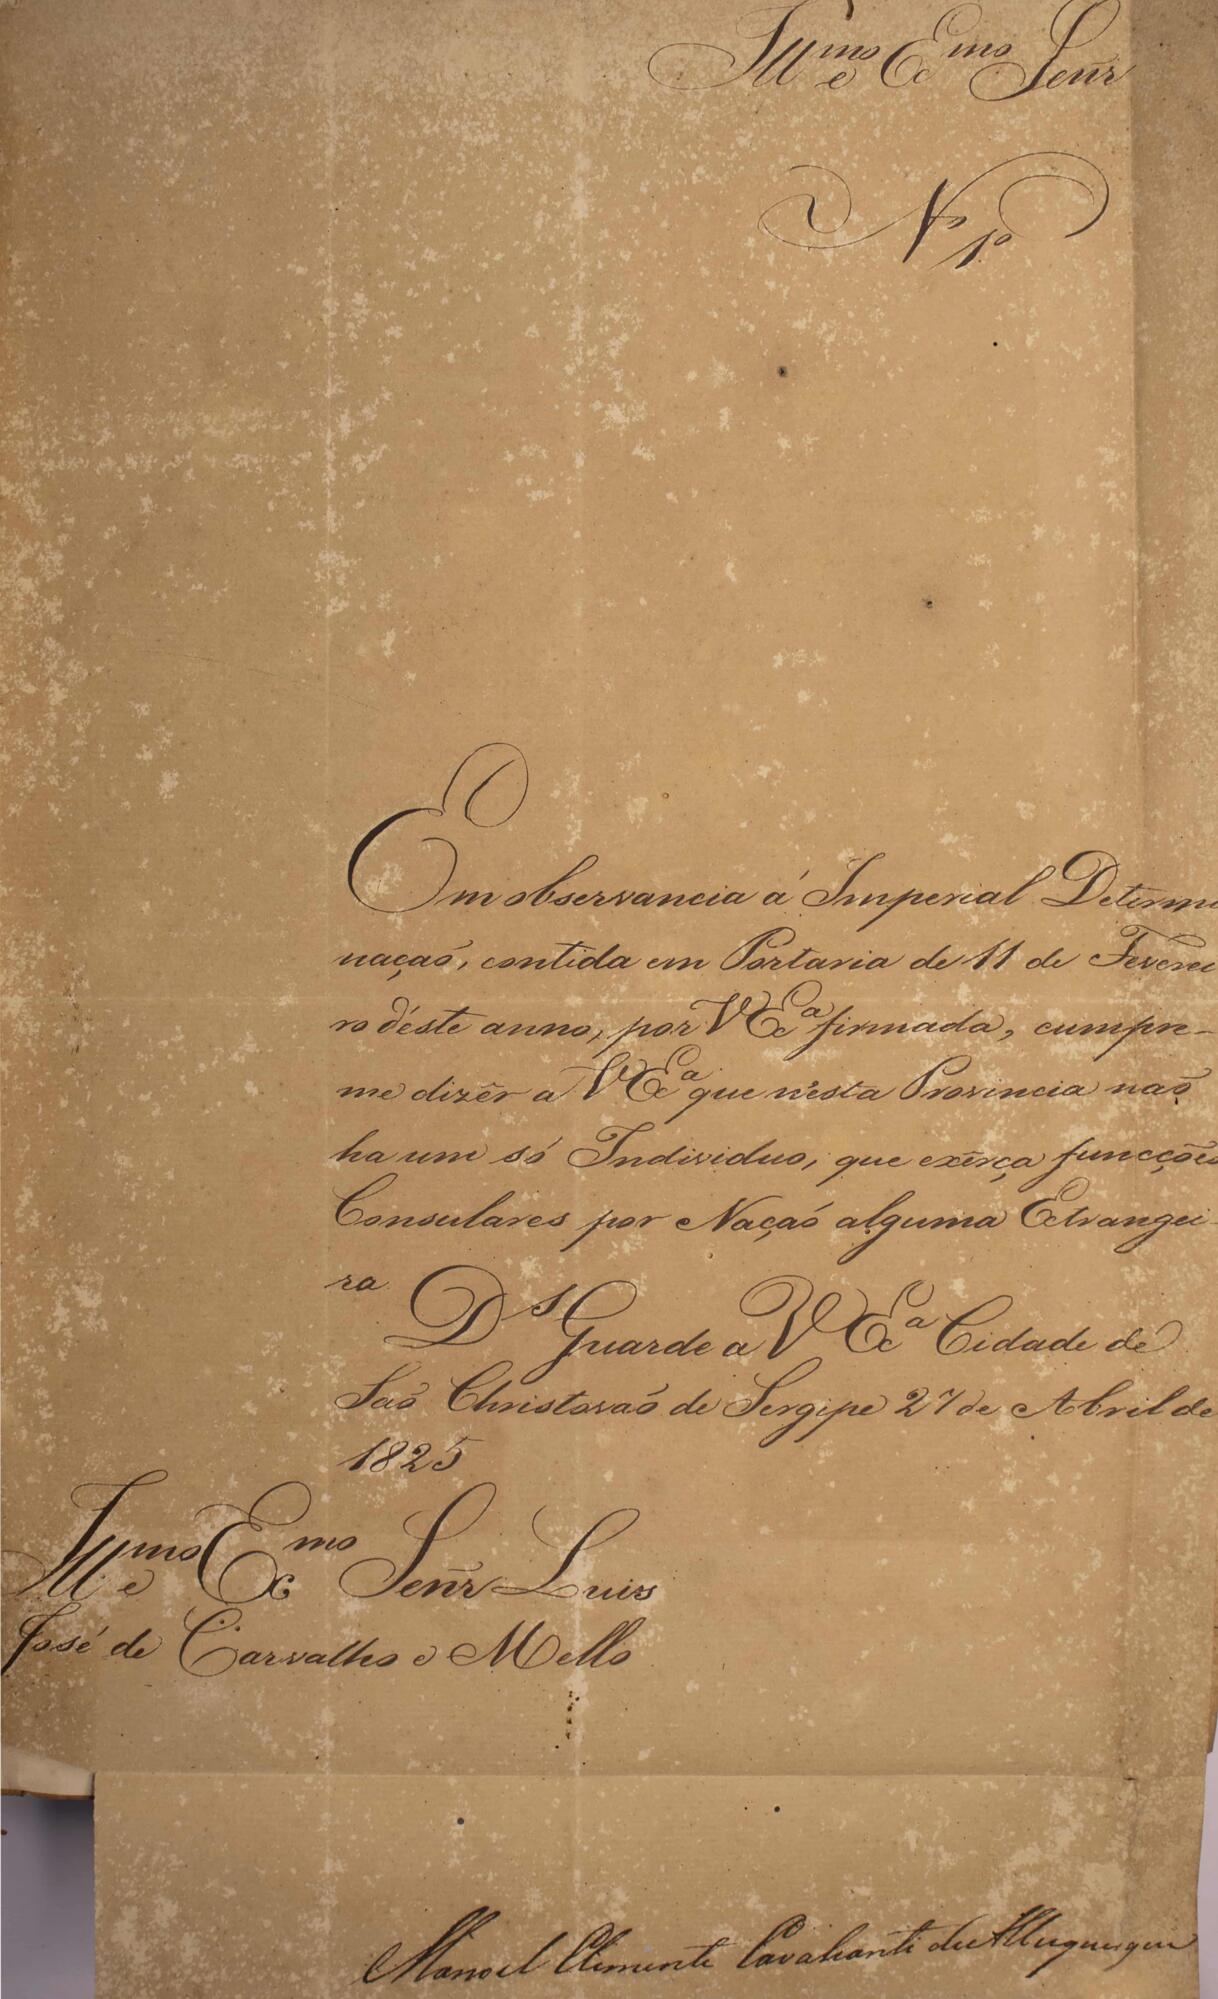 Illmo e Exmo Senr
No 1o
Em observancia á Imperial Determi
naçaõ, contida em Portaria de 11 de Feverei
ro d'éste anno, por VExa firmada, cumpre-
me dizêr a VExa que n'ésta Provincia naõ
ha um só Individuo, que exêrça funcções
Consulares por Naçaõ alguma Extrangei-
ra. Ds Guarde a VExa Cidade de
Saõ Christovaõ de Sergipe 27 de Abril de
1825
Illmo e Exmo Senr Luis
José de Carvalho e Mello
Manoel Clemente Cavalcanti de Albuquerque